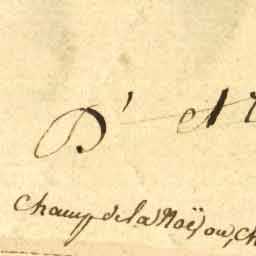 D'
champ de la Noë, ou, ch